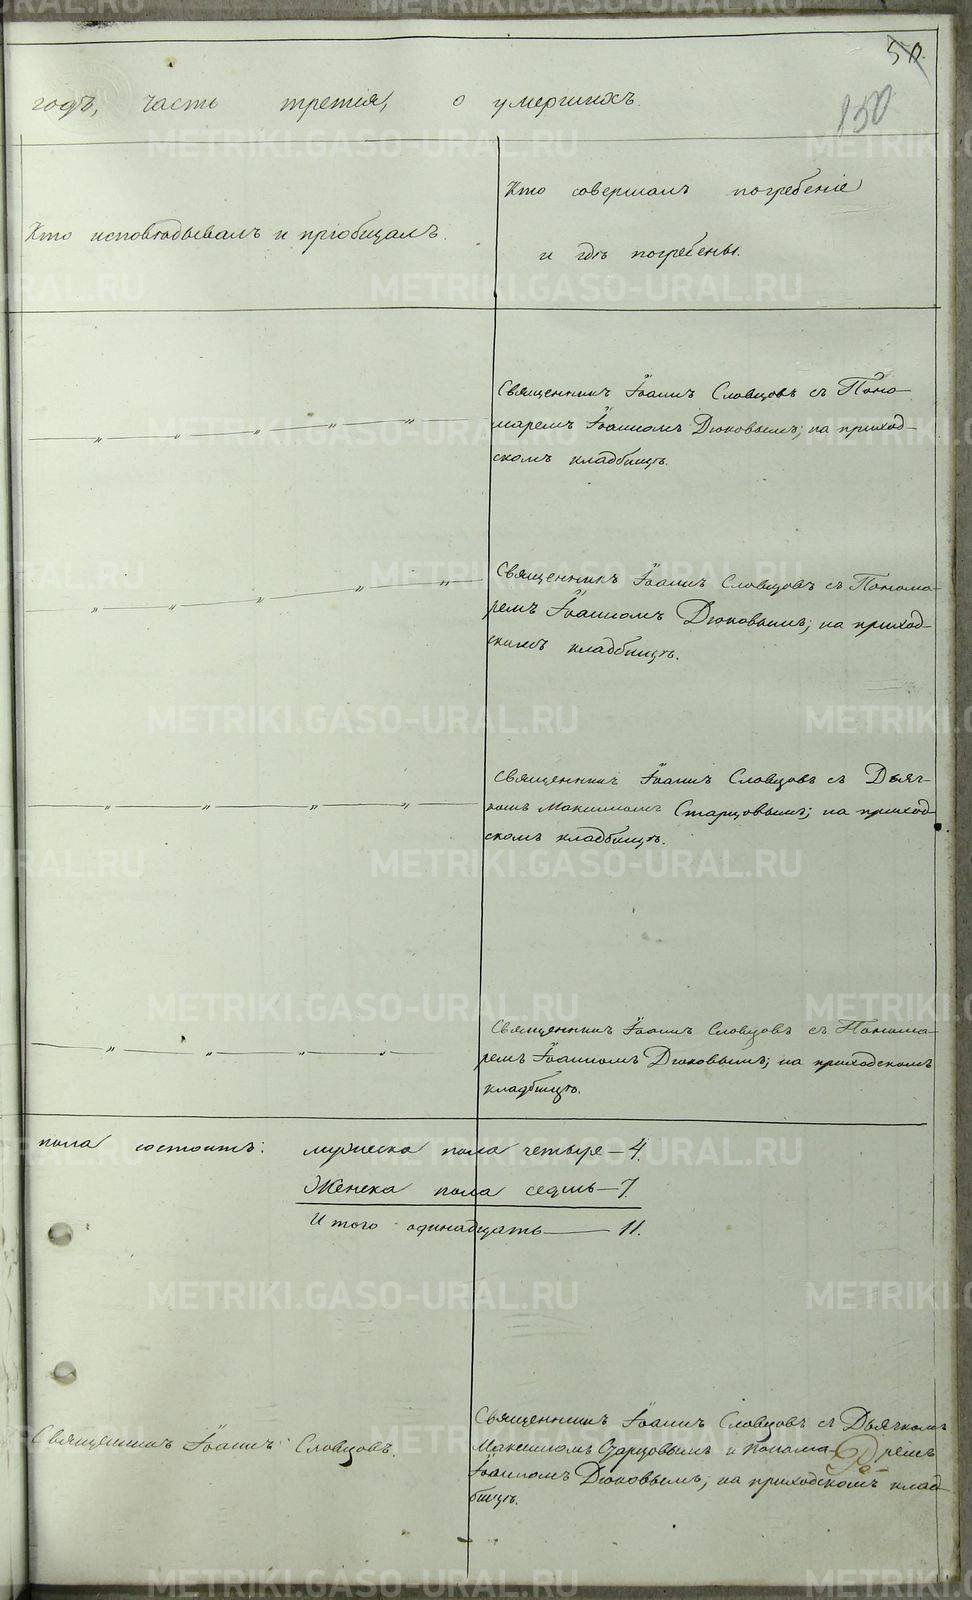 50.
150
годъ, часть третія, о умершихъ.
Кто исповѣдывалъ и пріобщалъ.
Кто совершалъ погребеніе
и гдѣ погребены.
Священникъ Іоаннъ Словцовъ съ Поно-
маремъ Іоанномъ Дюковымъ; на приход-
скомъ кладбищѣ.
Священникъ Іоаннъ Словцовъ съ Понома-
ремъ Іоанномъ Дюковымъ; на приход-
скомъ кладбищѣ.
Священникъ Іоаннъ Словцовъ съ Дьяч-
комъ Максимомъ Старцовымъ; на приход-
скомъ кладбищѣ.
Священникъ Іоаннъ Словцовъ съ Понома-
ремъ Іоанномъ Дюковымъ; на приходскомъ
кладбищѣ.
пола состоитъ: мужеска пола четыре — 4.
Женска пола седмь — 7
Итого одинадцать — 11.
Священникъ Іоаннъ Словцовъ.
Священникъ Іоаннъ Словцовъ съ Дьячкомъ
Максимомъ Старцовымъ и Понома-ремъ
Іоанномъ Дюковымъ, на приходскомъ клад-
бищѣ.
METRIKI.GASO-URAL.RU